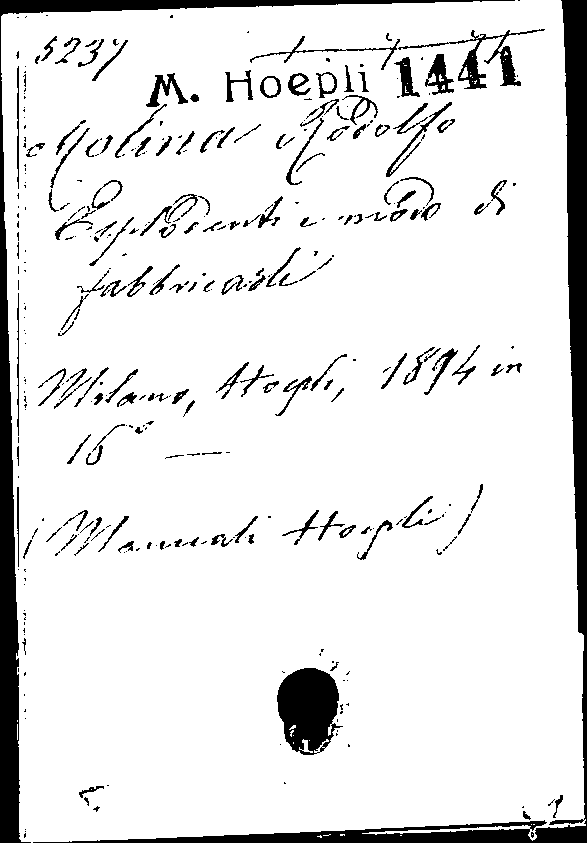 5237
M. Hoepli 1441
Molina Rodolfo
Esplodenti e modo di
fabbricarli
Milano, Hoepli, 1894 in
16° —
(Manuali Hoepli)